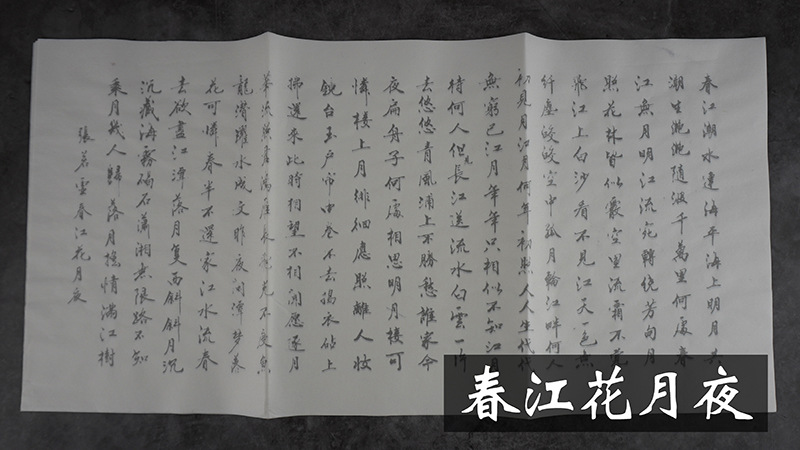 春江潮水連海平海上明月共
潮生灩灩隨波千萬里何處春
江無月明江流宛轉繞芳甸月
照花林皆似霰空里流霜不覺
飛江上白沙看不見江天一色無
纤塵皎皎空中孤月輪江畔何人
初見月江月何年初照人人生代代
無窮已江月年年只相似不知江月
待何人但見長江送流水白雲一片
去悠悠青楓浦上不勝愁誰家今
夜扁舟子何處相思明月樓可
憐樓上月徘徊應照離人妝
鏡台玉戶帘中卷不去搗衣砧上
拂還來此時相望不相聞愿逐月
華流照君鴻雁長飛光不度魚
龍潛躍水成文昨夜閑潭夢落
花可憐春半不還家江水流春
去欲盡江潭落月复西斜斜月沉
沉藏海霧碣石瀟湘無限路不知
乘月幾人歸落月搖情滿江樹
張若虛春江花月夜
春江花月夜